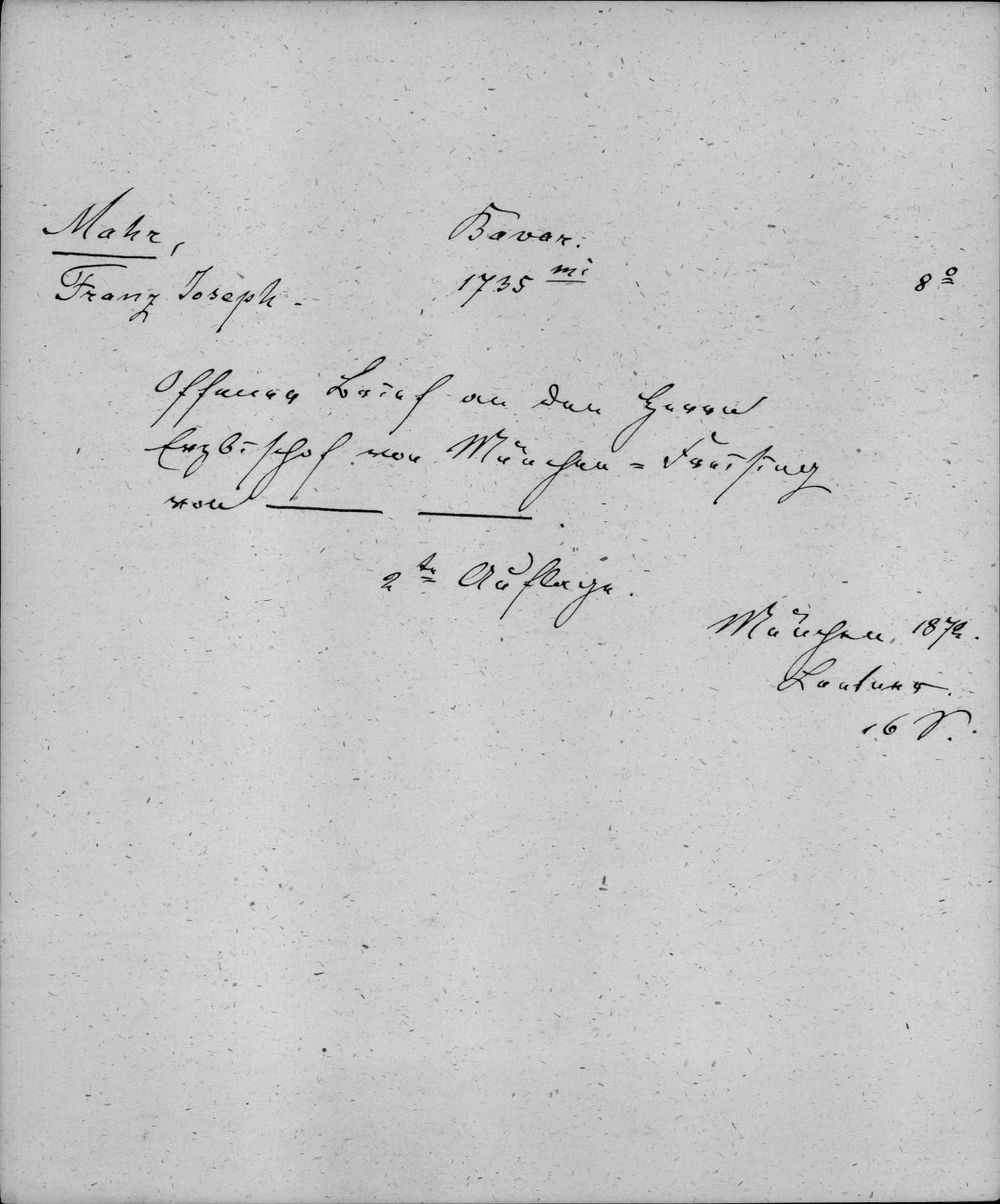 Mahr,
Franz Joseph.
Bavar.
1735 mi
8o
Offener Brief an den Herrn
Erzbischof von München=Freising
von
2te Auflage.
München,
Lentner.
16 S.